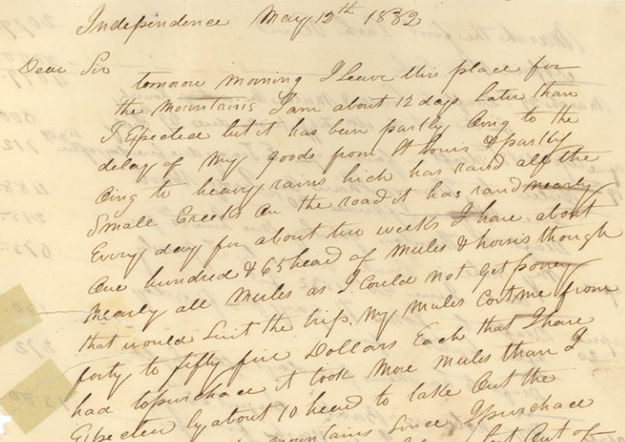 Independence May 12th 1832
Dear Sir
tomorow Morning I Leave this place for
the Mountains I am about 12 days Later than
I Expected but it has been partly Oing to the
delay of My goods from St Louis & partly
Oing to heavy rains hich has raisd all the
Small Creeks On the road it has raind nearly
Every day for about two weeks I have about
One hundred & 65 head of Mules & horsis though
Nearly all Mules as I Could Not Get poneys
that would Suit the trip. My Mules Cost me from
forty to fifty five Dollars Each that I have
had to purchace it took More Mules than I
Expected by about 10 heed to take Out the
mountains Since I purchace
Out of